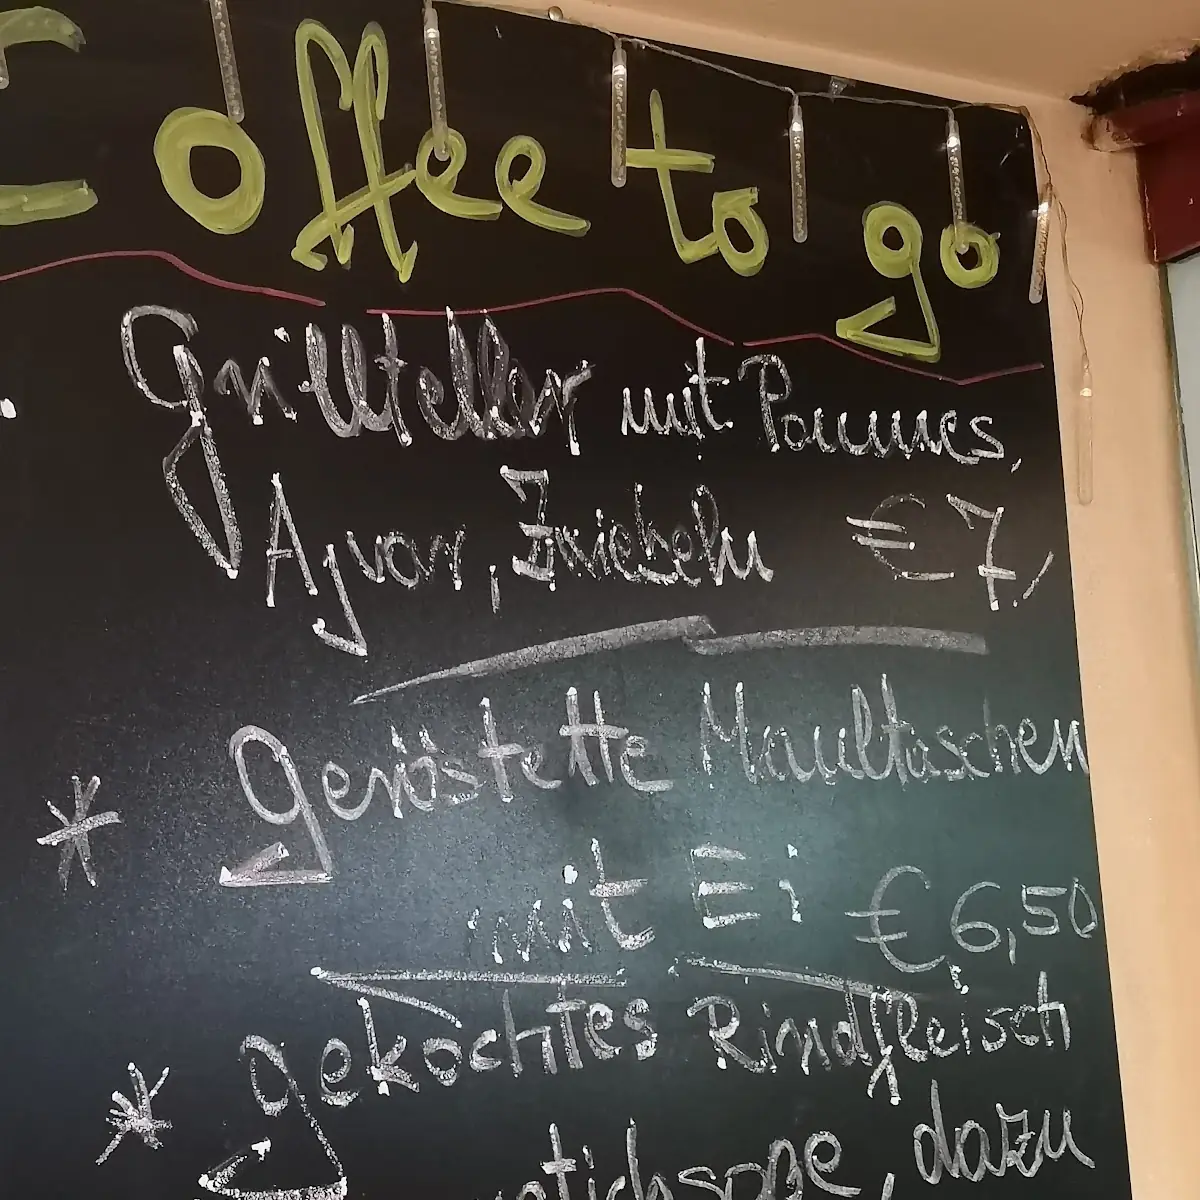 Coffee to go
Grillteller mit Pommes,
Ajvor, Zwiebeln €7,
* geröstette Maultaschen
mit Ei €6,50
* gekochtes Rindfleisch
dazu